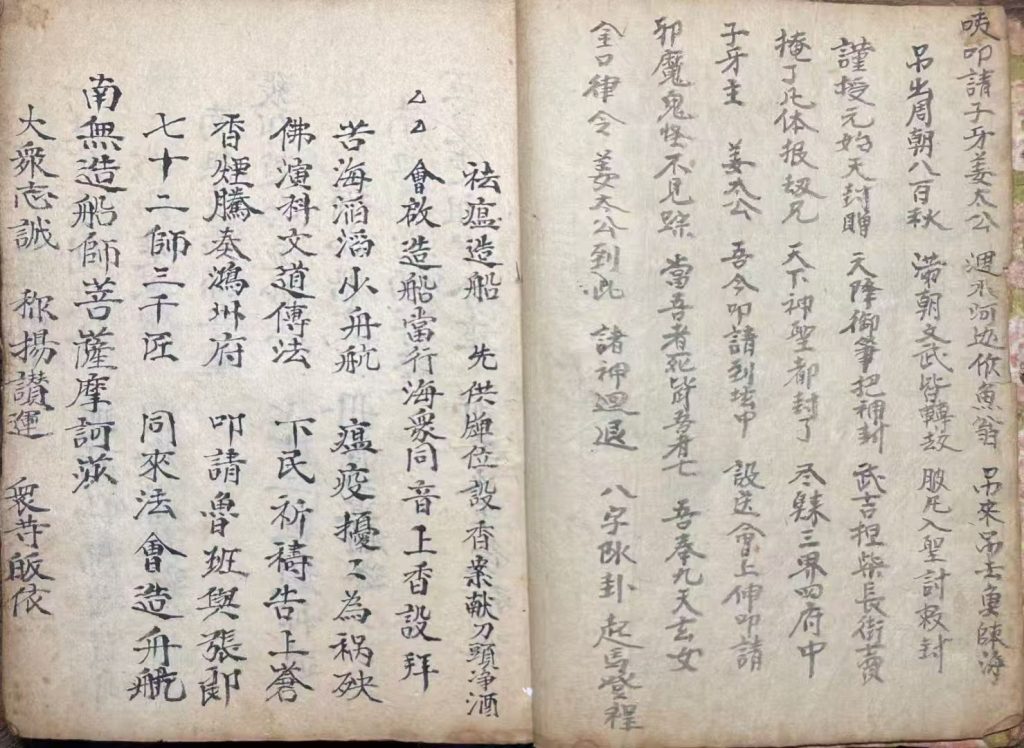 叩請子牙姜太公 河边作魚翁 吊來吊去魚陳海
吊出周朝八百秋 滿朝文武皆轉敖 脫凡入聖討救封
謹授元始天封贈 天降御筆把神封 武吉担柴長街賣
掩了凡体报劫兄 天下神聖都封了 尽隸三界四府中
子牙主 姜太公 吾今叩請到坛中 設送會上伸叩請
邪魔鬼怪不見踪 當吾者死皆吾者亡 吾奉九天玄女
金口律令 姜太公到此 諸神迴退 八字卧卦 起馬登程
祛瘟造船 先供牌位設香案献刀頭净酒
會啟造船當行海衆同音上香設拜
苦海滔滔少舟航 瘟疫擾〻為禍殃
佛演科文道傳法 下民祈禱告上蒼
香煙騰奏鴻州府 叩請魯班與張郎
七十二師三千匠 同來法會造舟航
南無造船師菩薩摩訶薩
大衆志誠 称揚讃運 衆等皈依